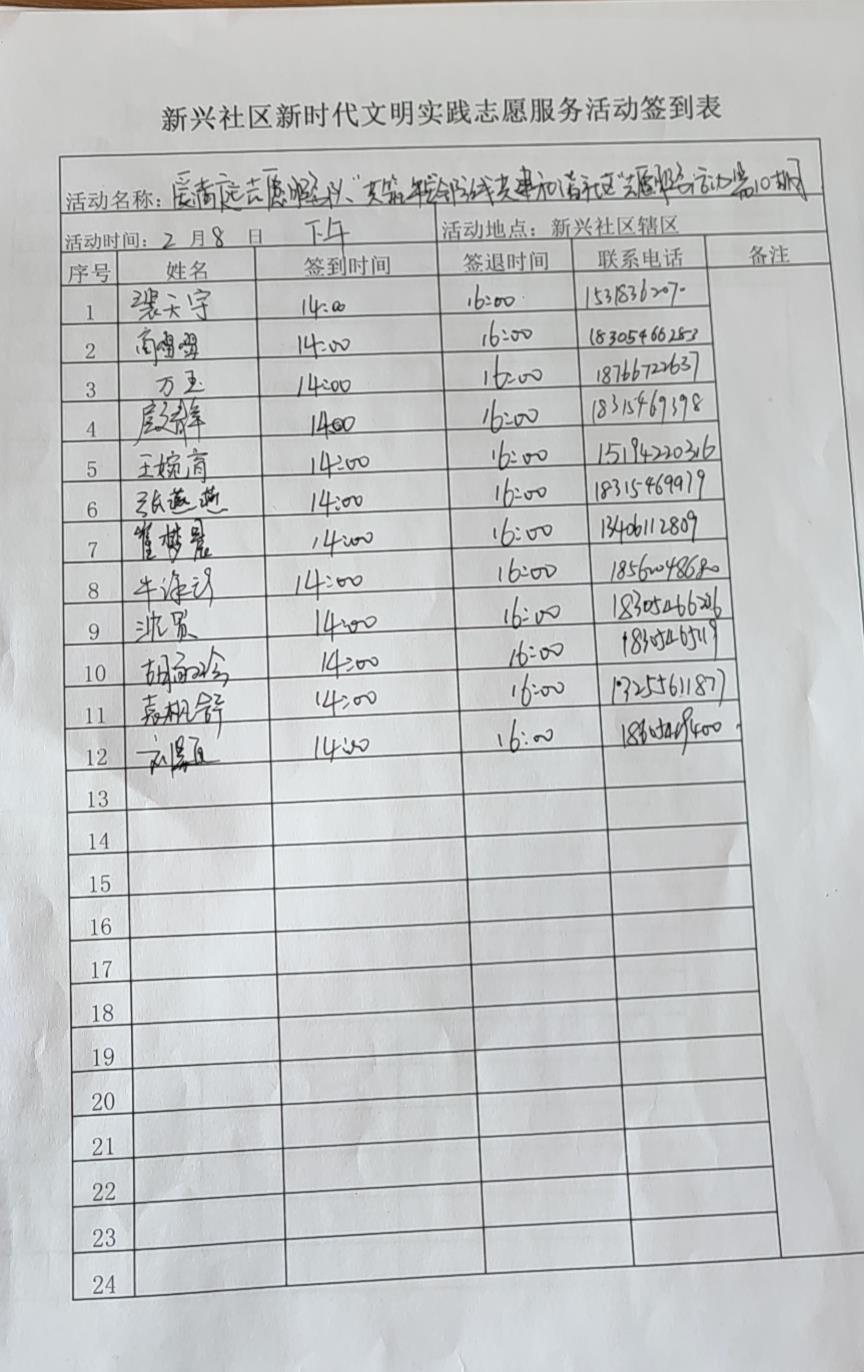 新兴社区新时代文明实践志愿服务活动签到表
活动名称：志愿服务 共建和谐社区"志愿服务活动第10期
活动时间：2 月 8 日 下午 活动地点：新兴社区辖区
序号 姓名 签到时间 签退时间 联系电话 备注
1 裴天宇 14:00 16:00
2 14:00 16:00 18305466283
3 万玉 14:00 16:00 18766722637
4 14:00 16:00 18315469398
5 王婉育 14:00 16:00 15194220316
6 张燕燕 14:00 16:00 18315469979
7 崔梦晨 14:00 16:00 13406112809
8 14:00 16:00
9 沈贤 14:00 16:00 18305466206
10 14:00 16:00
11 14:00 16:00 13255611877
12 14:00 16:00
13
14
15
16
17
18
19
20
21
22
23
24